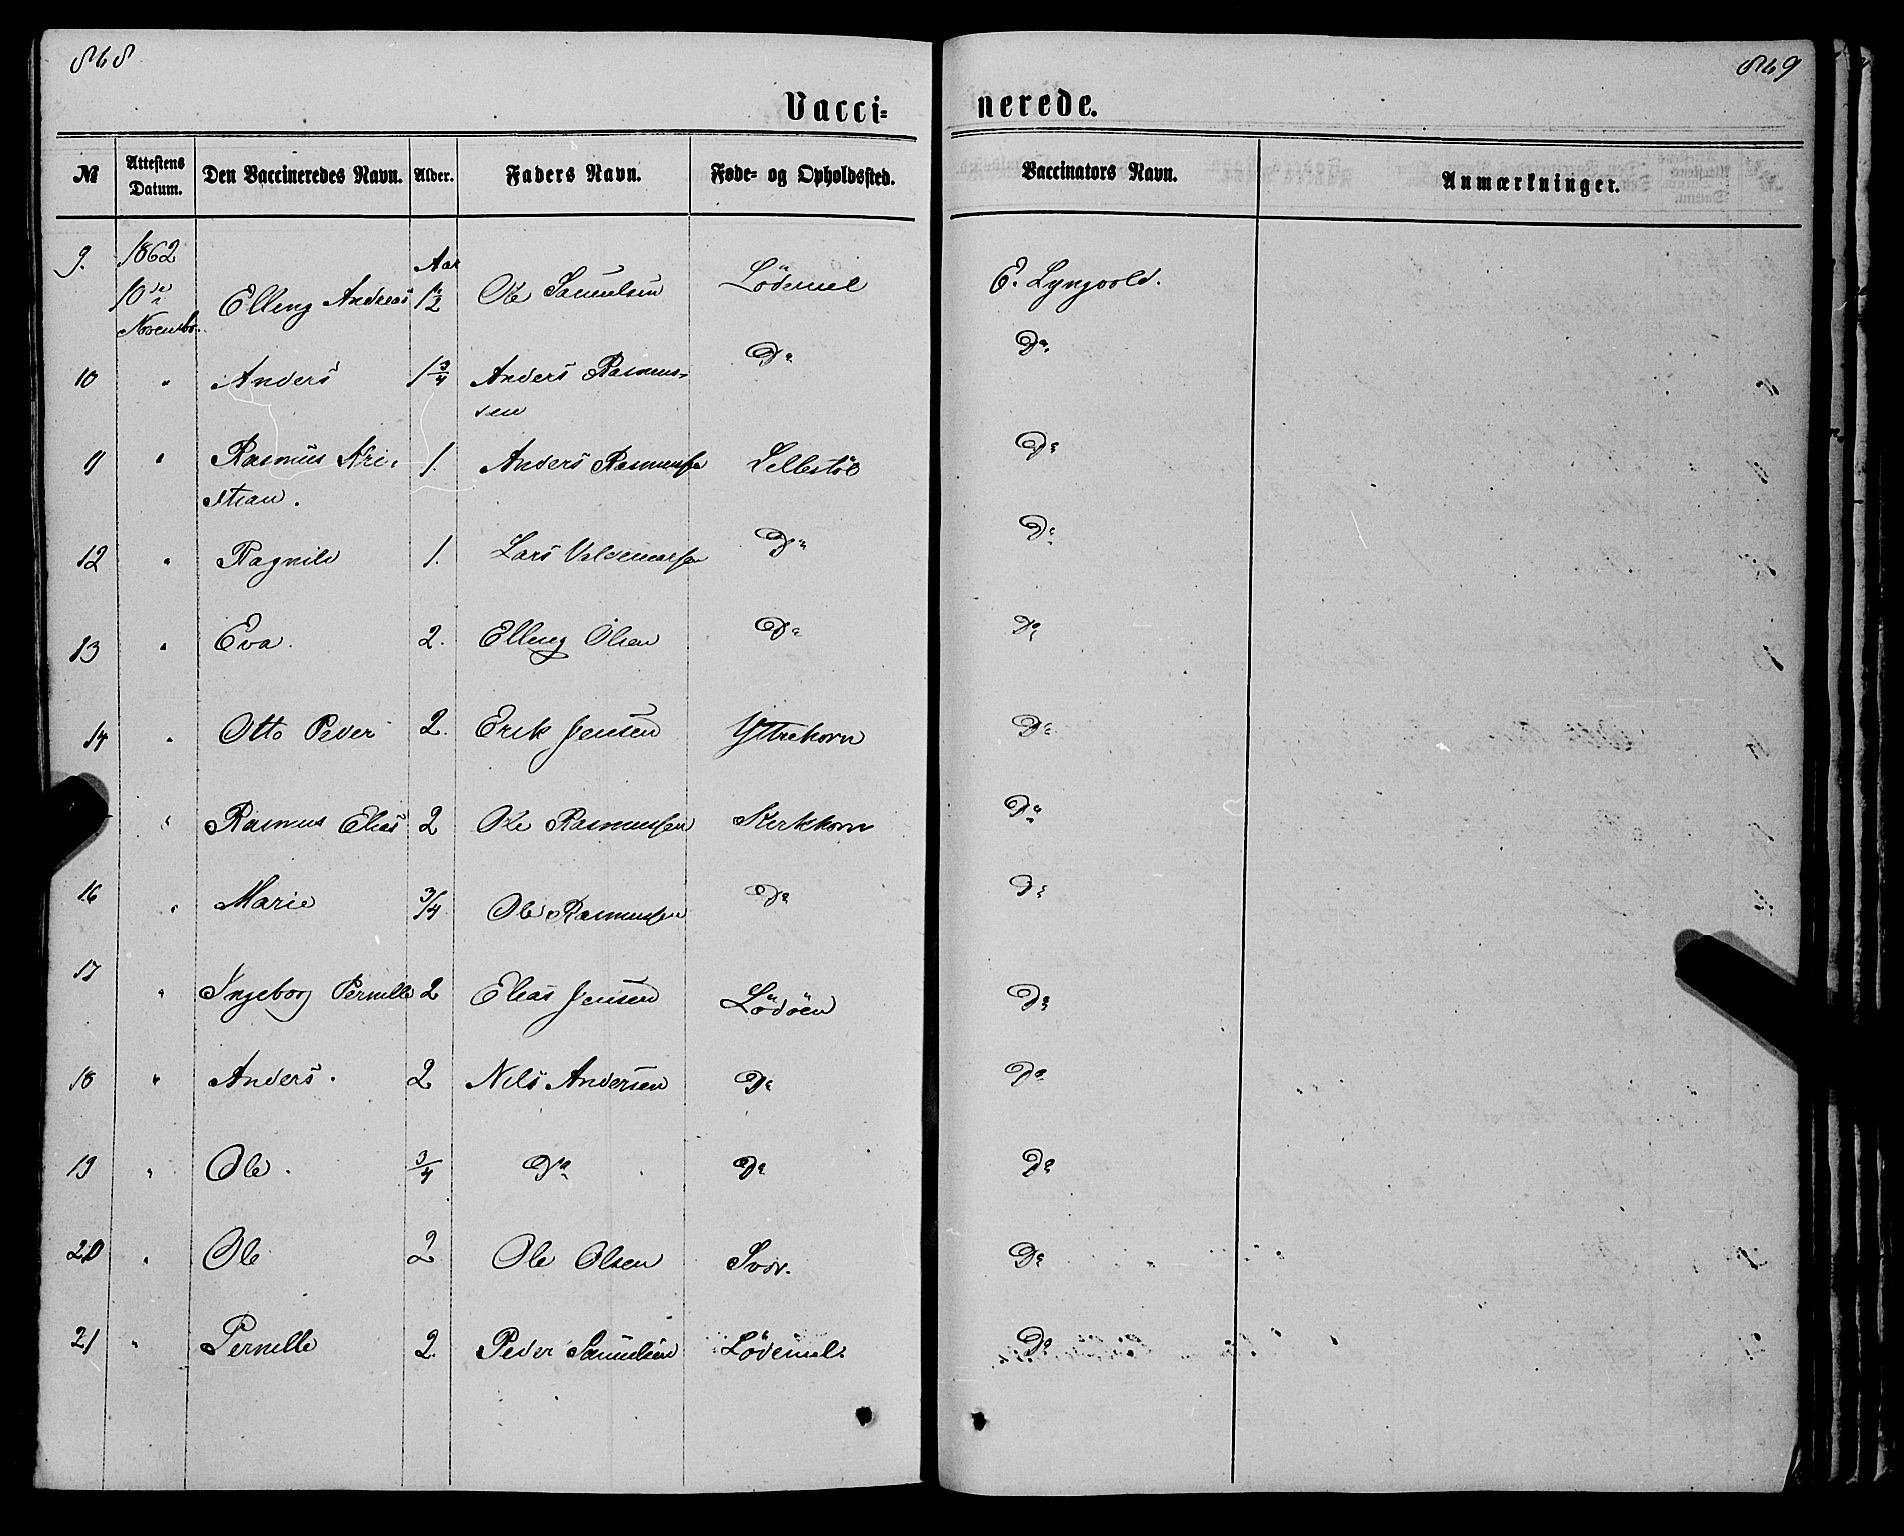 868
869
Vacci=
nerede.
№ Attestens Datum. Den Vaccineredes Navn. Alder. Faders Navn. Føde= og Opholdssted. Vaccinators Navn. Anmærkninger.
9. 1862 Aar
10de Elleng Andreas 1½ Ole Samulsen Lödemel E. Lyngvold.
Novembr.
10 " Anders 1¾ Anders Rasmus= Do Do
sen
11 " Rasmus Kri= 1. Anders Rasmussen Lellestöl Do
stian.
12 " Ragnild 1. Lars Valdemarsen Do Do
13 " Eva. 2. Elleng Olsen Do Do
14 " Otto Peder 2. Erik Jensen Yttrehorn Do
" Rasmus Elias 2 Ole Rasmussen Kerkhorn Do
16 " Marie 3/4 Ole Rasmussen Do Do
17 " Ingeborg Pernille 2 Elias Jensen Lödöen Do
18 " Anders. 2 Nils Andersen Do Do
19 " Ole. 3/4 Do Do Do
20 " Ole 2 Ole Olsen Svor. Do
21 " Pernille 2. Peder Samulsen Lödemel. Do